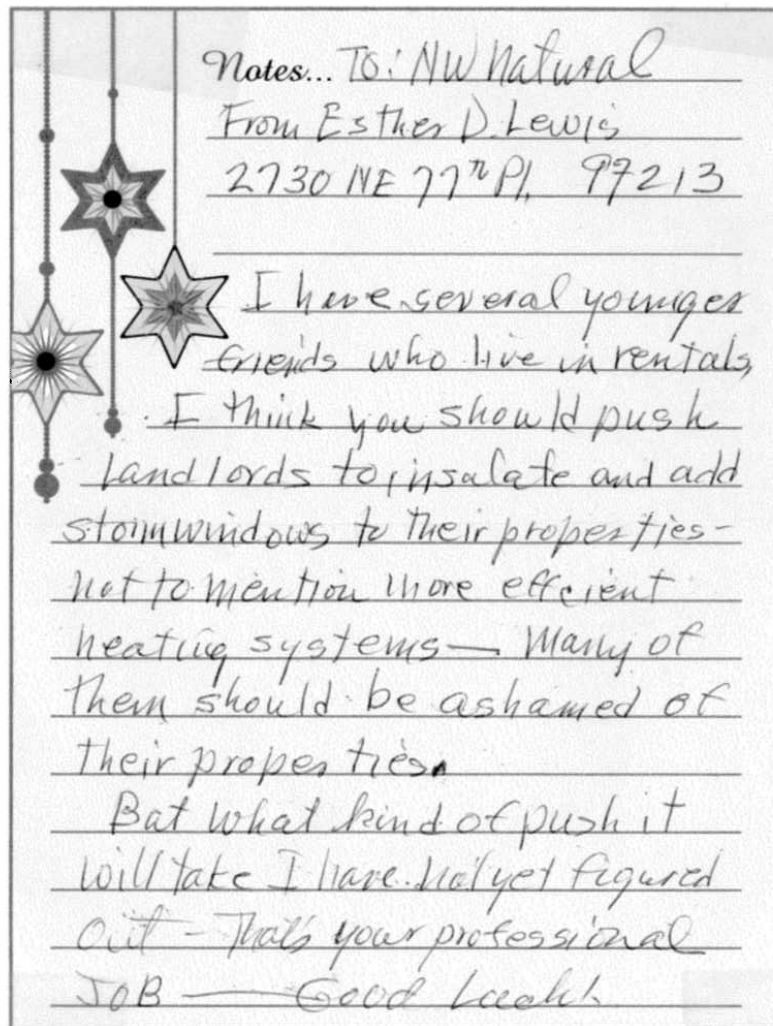 Notes... To: NW natural
From Esther D. Lewis
2730 NE 77th Pl. 97213
I have several younger
friends who live in rentals,
I think you should push
Landlords to insulate and add
stormwindows to their properties-
not to mention more effcient
heating systems— Many of
them should be ashamed of
their properties.
But what kind of push it
will take I have not yet figured
out - That's your professional
JOB —— Good Luck!